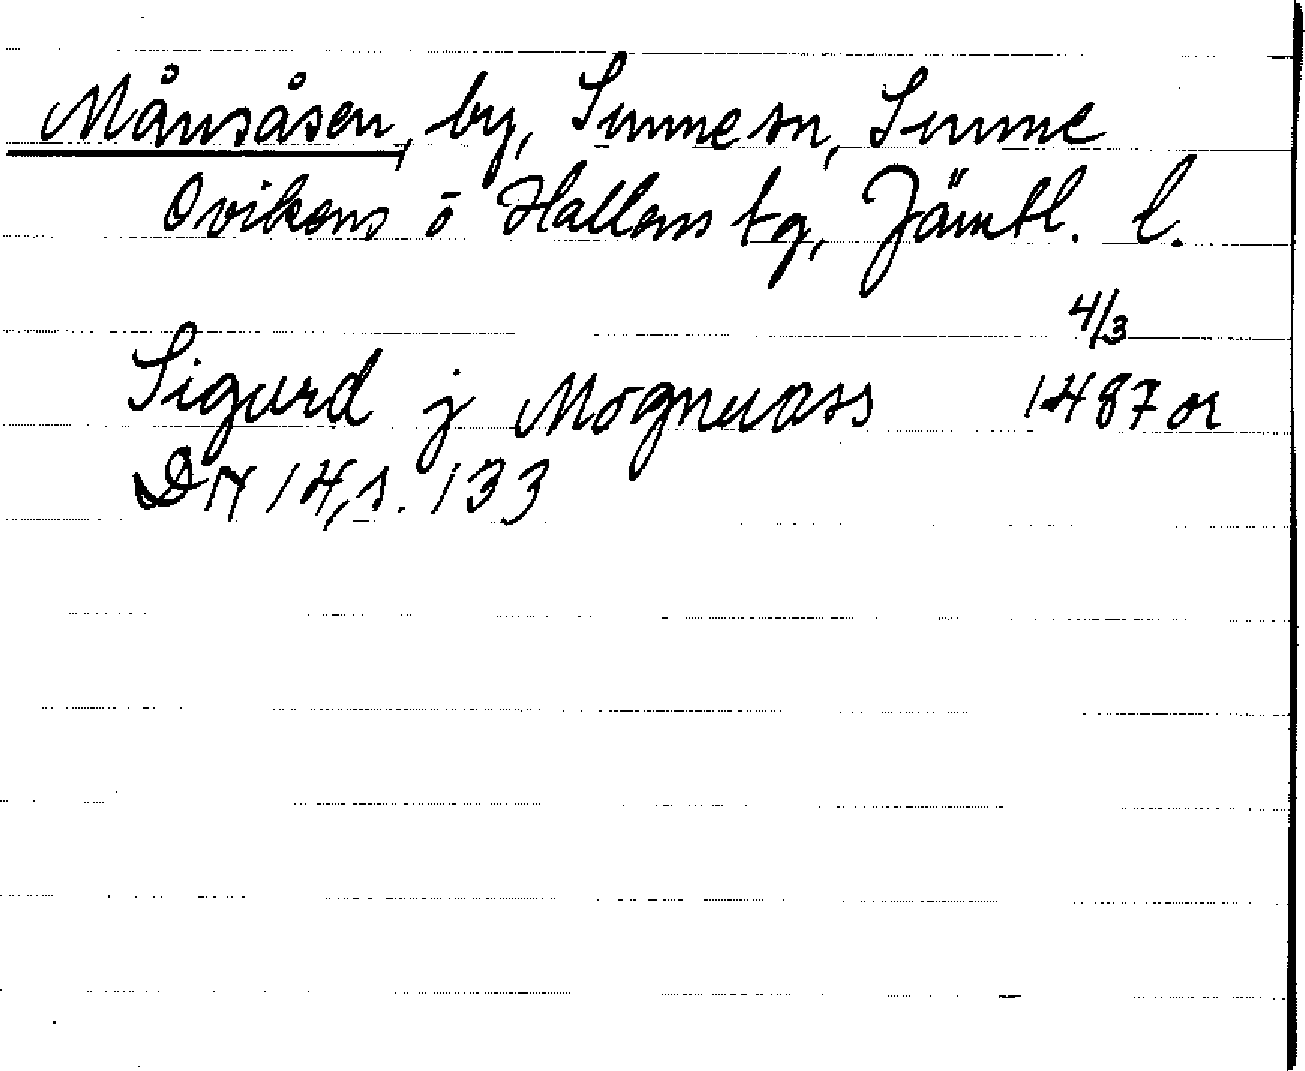 Månsåsen, by, Sunne sn, Sunne
Ovikens o Hallens tg, Jämtl. l.
4/3
Sigurd j Mognuass 1487 or
DN 14, s. 133